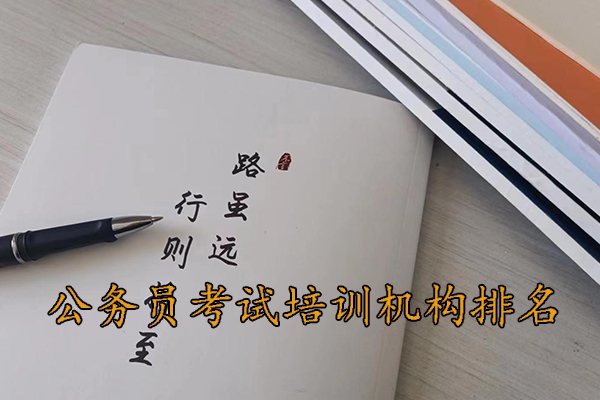 路虽远
行则至
公务员考试培训机构排名